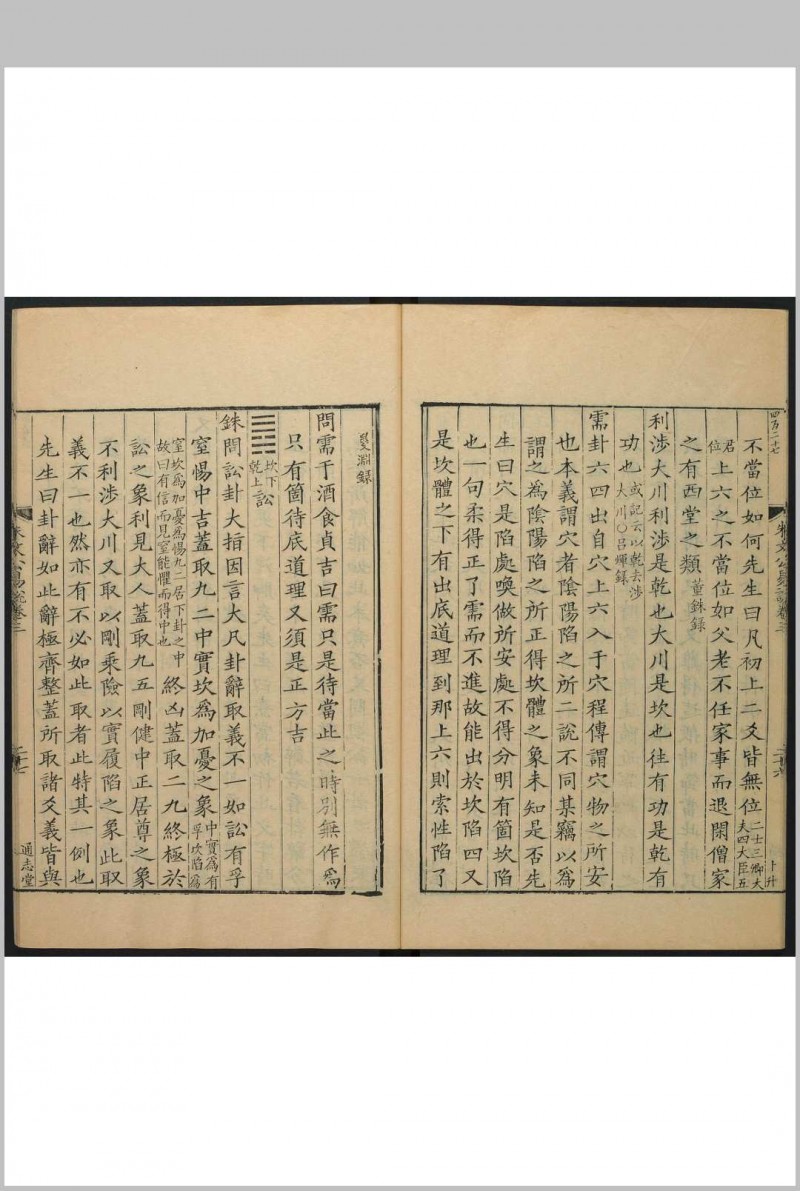 四百二七
不當位如何先生曰凡初上二爻皆無位二士三卿大夫四大臣五
君位上六之不當位如父老不任家事而退閑僧家
之有西堂之類董銖録
利涉大川利涉是乾也大川是坎也往有功是乾有
功也或記云以乾去涉大川〇呂煇録
需卦六四出自穴上六入于穴程傳謂穴物之所安
也本義謂穴者陰陽陷之所二說不同某竊以爲
謂之爲陰陽陷之所正得坎體之象未知是否先
生曰穴是陷處喚做所安處不得分明有箇坎陷
也一句柔得正了需而不進故能出於坎陷四又
是坎體之下有出底道理到那上六則索性陷了
卜升
朱文公易說卷三
二十六
㬊淵録
問需于酒食貞吉曰需只是待當此之時別無作爲
只有箇待底道理又須是正方吉
坎下乾上訟
銖問訟卦大指因言大凡卦辭取義不一如訟有孚
窒惕中吉蓋取九二中實坎爲加憂之象中實爲有孚坎陷爲
窒坎爲加憂爲惕九二居下卦之中故曰有信而見窒能懼而得中也終凶蓋取二九終極於
訟之象利見大人蓋取九五剛健中正居尊之象
不利涉大川又取以剛乘險以實履陷之象此取
義不一也然亦有不必如此取者此特其一例也
先生曰卦辭如此辭極齊整蓋所取諸爻義皆與
朱文公易說卷三
二十七
通志堂